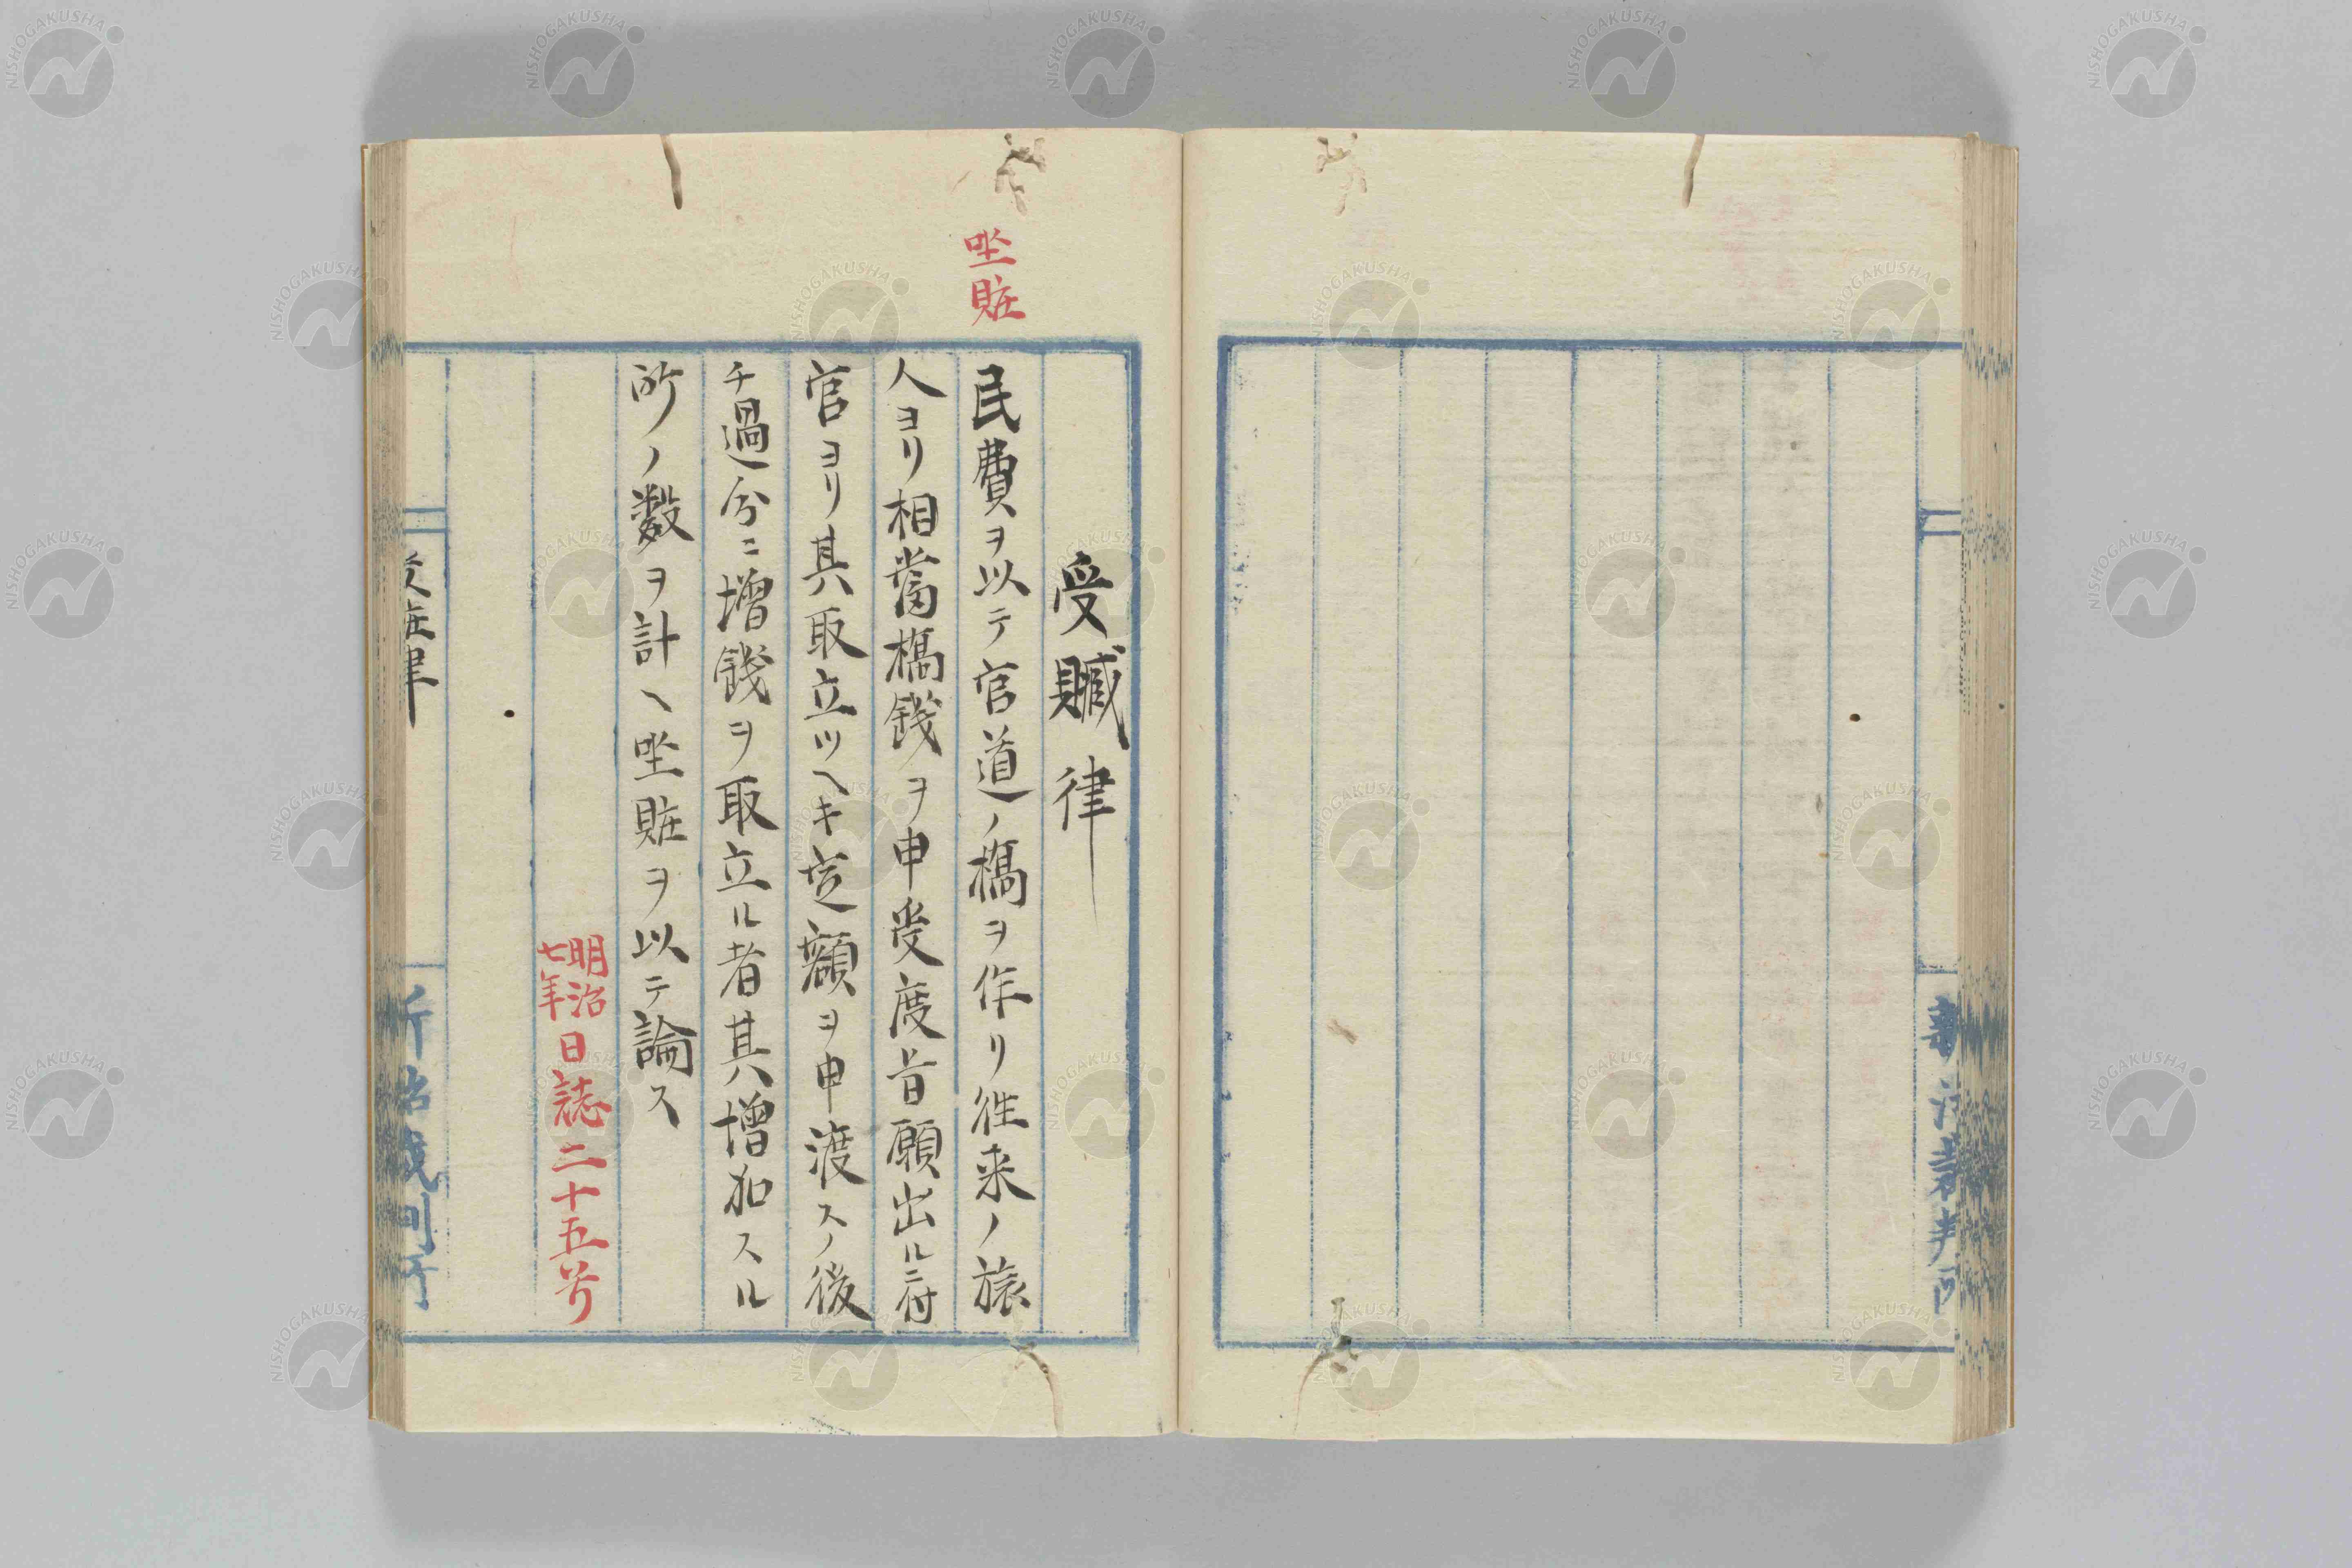 受贓律
坐賍
民費ヲ以テ官道ノ橋ヲ作リ徃来ノ旅
人ヨリ相當橋錢ヲ申受度旨願出ルニ付
官ヨリ其取立ツヘキ定額ヲ申渡スノ後
チ過分ニ增錢ヲ取立ル者其增加スル
所ノ数ヲ計ヘ坐賍ヲ以テ論ス
明治七年日誌二十五号
NISHOGAKUSHA